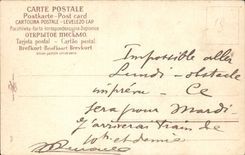 CARTE POSTALE
Postkarte - Post card
CARTOLINA POSTALE - LEVELEZŐ LAP
ОТКРЫТОЕ ПИСЬМО
Tarjeta postal - Cartão postal
Brefkort - Brevkort
Impossible aller
Lundi - obstacle
imprévu - Ce
sera pour Mardi
j'arriverai train de
et demie